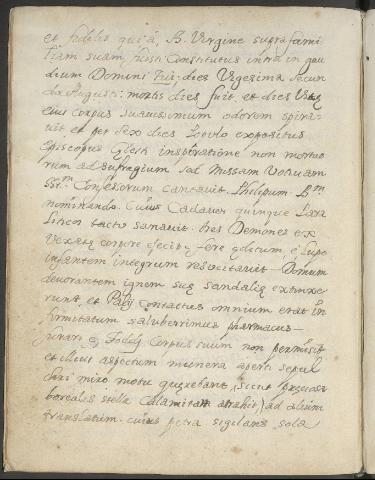 et fidelis quia, B. Virgine supra fami
liam suam fuisti Constitutus intra in gau
dium Domini tui; dies Vigesima secun
da Augusti: mortis dies fuit et dies Vitæ
eius corpus suavissimum odorem spira
vit, et per sex dies populo expositus
Episcopus inspiratione non mortuo
rum ad sufragium sed Missam Votivam
SS.m Confessorum cantavit. Philipum B.m
nominando. Cuius Cadaver quinque
tactu sanavit. tres Demones ex
Vexatis corpore efecit,
infantem integrum resucitavit
devorantem ignem suæ sandaliæ extinxe
runt, et contactus omnium erat in
firmitatum saluberrimus pharmacus
corpus suum non permisit
et illius aspectum munera aperti sepul
chri miro motu quærebant, sicut
borealis stella Calamitam atrahit, ad alium
translatum. cuius petra sigilans sola